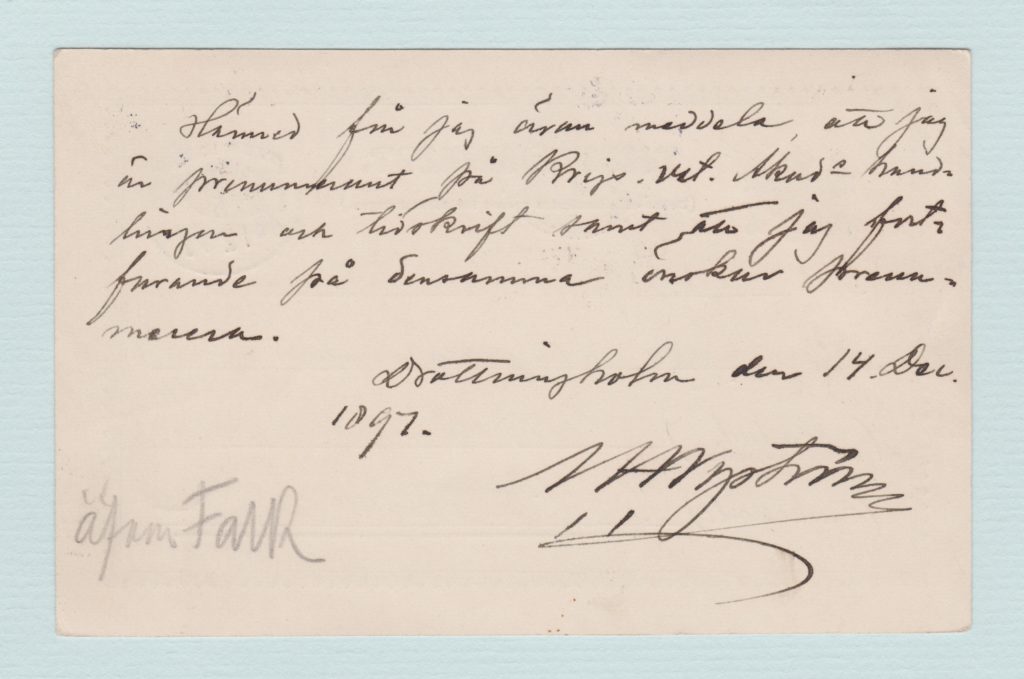 Härmed får jag äran meddela, att jag
är prenumerant på Krigs. vet. Akads hand-
lingar och tidskrift samt att jag fort-
farande på densamma önskar prenu-
merera.
Drottningholm den 14. Dec.
1897.
Nyström
äfven Falk